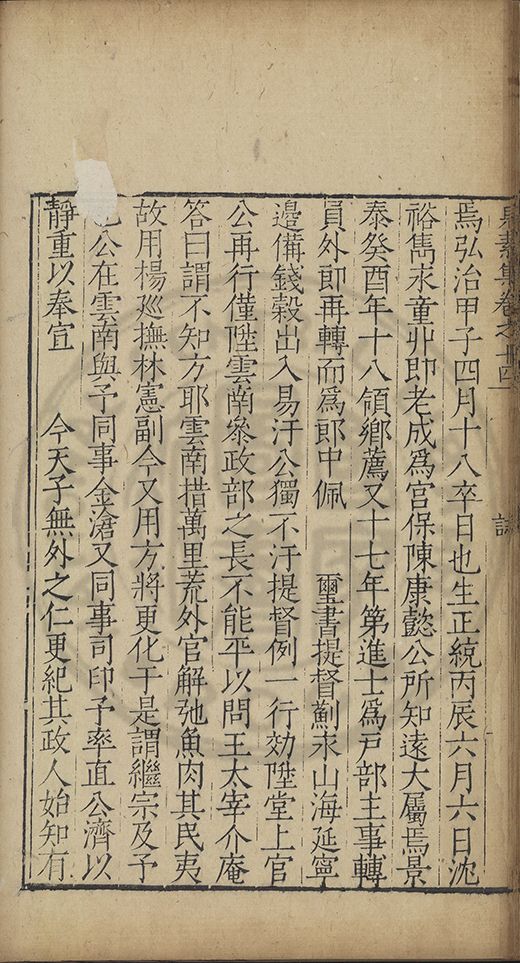 集卷之十四 誌
焉弘治甲子四月十八卒日也生正統丙辰六月六日沈
裕雋求童丱即老成爲官保陳康懿公所知遠大屬焉景
泰癸酉年十八領鄉薦又十七年第進士爲戶部主事轉
員外郎再轉而爲郎中佩 璽書提督薊永山海延寧
邉備錢榖出入易汙公獨不汙提督例一行効陞堂上官
公再行僅陞雲南叅政部之長不能平以問王太宰介庵
答曰謂不知方耶雲南措萬里荒外官解弛魚肉其民夷
故用楊廵撫林憲副今又用方將更化于是謂繼宗及予
也公在雲南與予同事金滄又同事司印予率直公濟以
靜重以奉宣 今天子無外之仁更紀其政人始知有